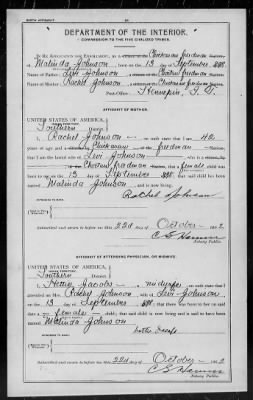 BIRTH AFFIDAVIT.
DEPARTMENT OF THE INTERIOR.
COMMISSION TO THE FIVE CIVILIZED TRIBES.
IN RE APPLICATION FOR ENROLLMENT, as a citizen of the Chickasaw freedman
of Malinda Johnson, born on the 13 day of September
Name of Father: Levi Johnson a citizen of the Choctaw freedman
Name of Mother: Rachel Johnson a citizen of the Chickasaw freedman
Post-Office
AFFIDAVIT OF MOTHER.
UNITED STATES OF AMERICA,
INDIAN TERRITORY,
Southern District.
I, Rachel Johnson, on oath state that I am 42
years of age and a citizen by Chickasaw freedman
that I am the lawful wife of Levi Johnson, who is a citizen, by
Choctaw freedman that a female child was
born to me on the 13 day of September, that said child has been
named Malinda Johnson, and is now living.
Rachel Johnson
Subscribed and sworn to before me this 22d October
Notary Public.
AFFIDAVIT OF ATTENDING PHYSICIAN, OR MIDWIFE.
UNITED STATES OF AMERICA,
INDIAN TERRITORY,
Southern District.
I, Hettie Jacobs, a midwife, on oath state that I
attended on Mrs. Rachel Johnson, wife of Levi Johnson
on the 13 day of September, that there was born to her on said
date a female child; that said child is now living and is said to have been
named Malinda Johnson
Subscribed and sworn to before me this 22d October
Notary Public.